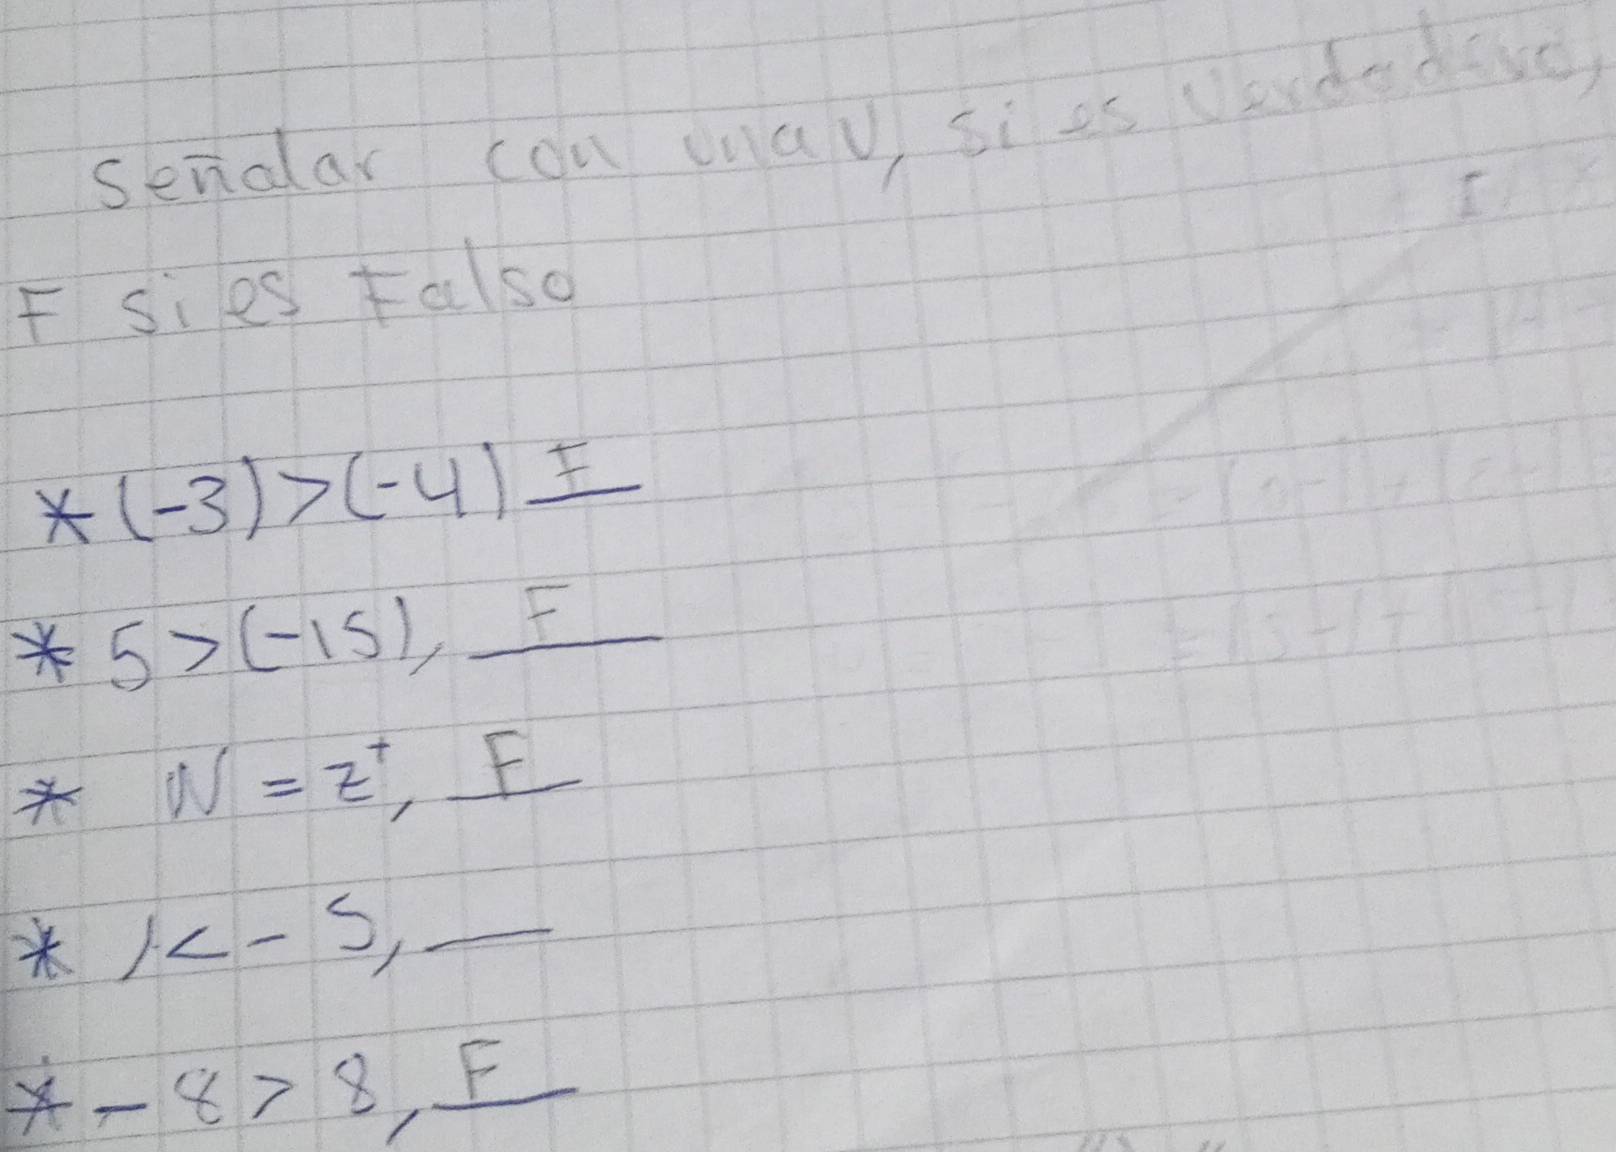 Señalar con una V, si es Verdadero,
F si es Falso
* (-3) > (-4) F
* 5 > (-15), F
* N = z⁺, F
* 1 < - 5, __
* - 8 > 8, F